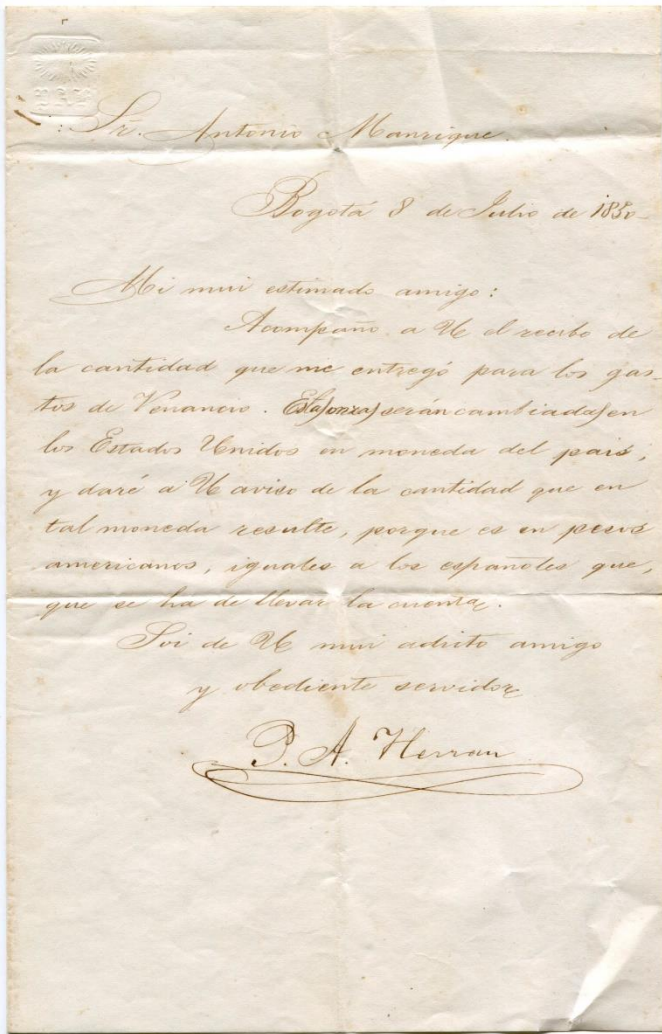 Sr. Antonio Manrique.
Bogotá 8 de Julio de 1850
Mi mui estimado amigo:
Acompaño a U el recibo de
la cantidad que me entregó para los gas-
tos de Venancio. Estas onzas serán cambiadas en
los Estados Unidos en moneda del pais,
y daré a U aviso de la cantidad que en
tal moneda resulte, porque es en pesos
americanos, iguales a los españoles que,
que se ha de llevar la cuenta.
Soi de U mui adicto amigo
y obediente servidor
P. A. Herran